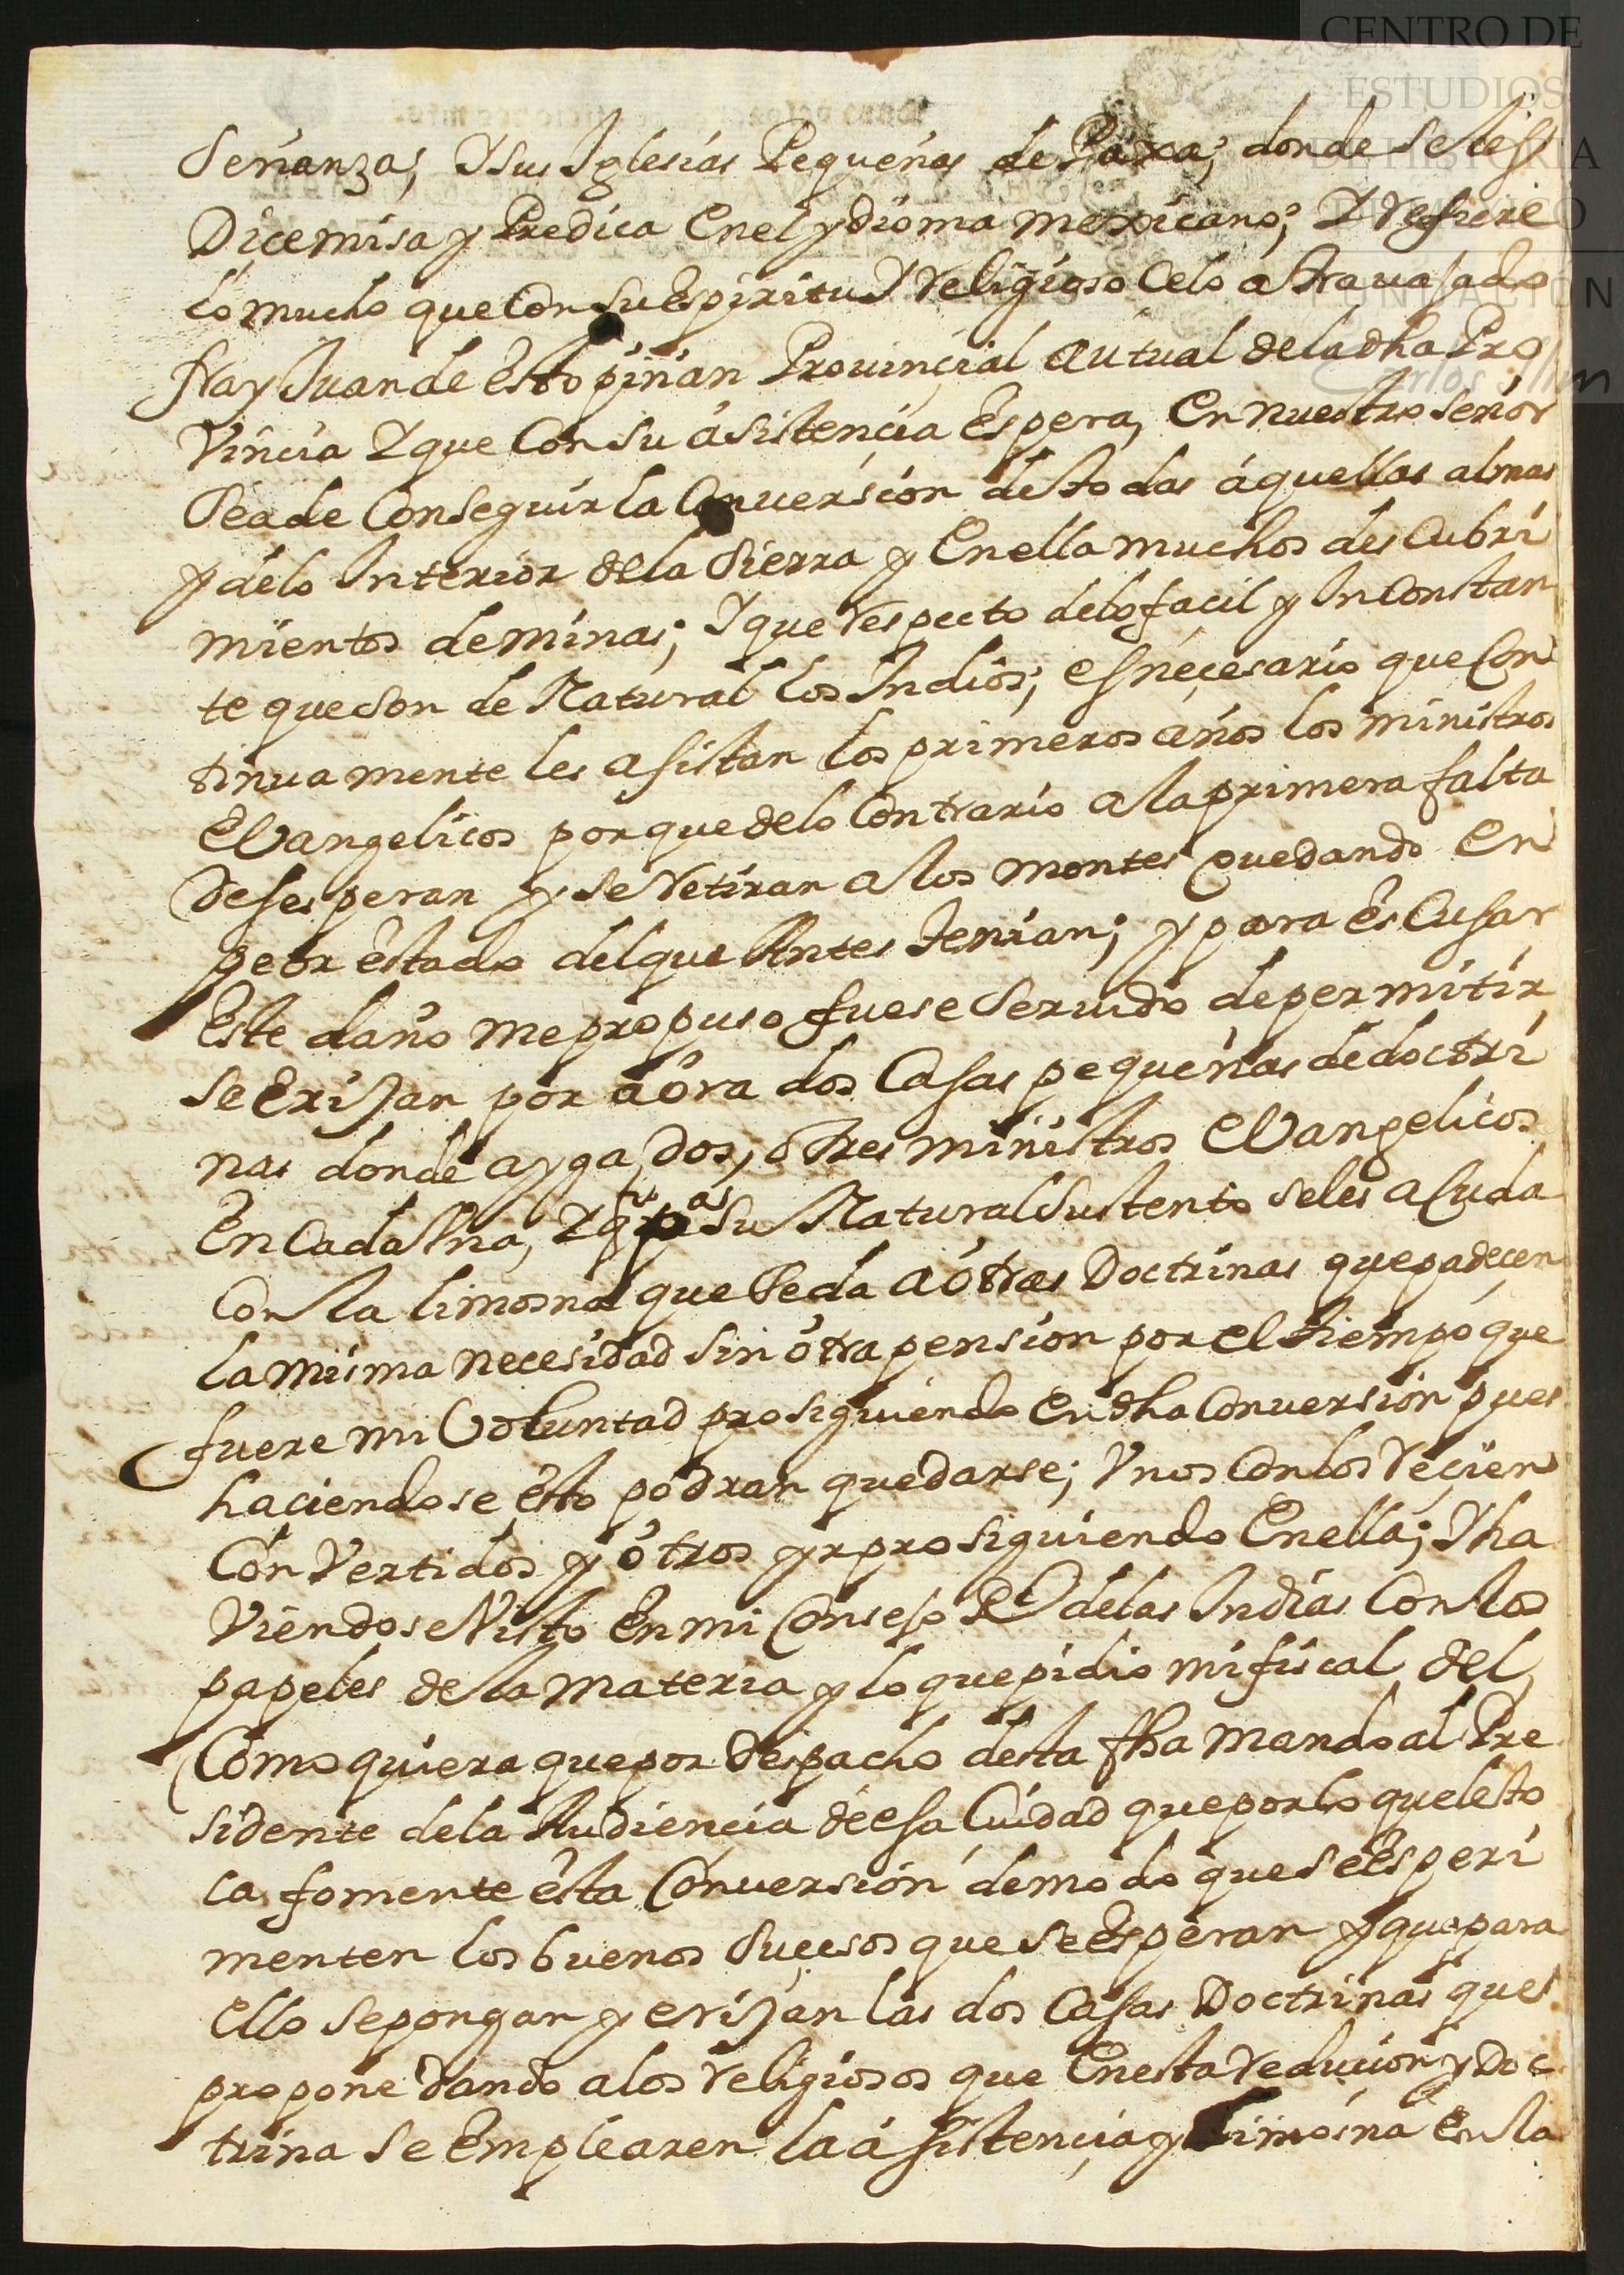 CENTRO DE
ESTUDIOS
DE HISTORIA
DE MEXICO
FUNDACIÓN
Carlos Slim
señanza; Y sus Iglesias Pequeñas de Paxa; donde se les
Dice misa y Predica En el ydioma mexicano; Y refiere
lo mucho que Con su Espiritu Y Religioso Celo a trauajado
fray Juan de Estopiñán Prouinçial autual de la dha Pro
Vincia Y que Con su ásistençia Espera, En nuestro señor
sea de Conseguir la Conuersión de todas áquellas almas
y de lo Interior de la Sierra y En ella muchos des Cubri
mientos de minas; Y que Respecto de lo facil y InConstan
te que son de Natural los Indios; es neçesario que Con
tinua mente les asistan los primeros años los ministros
EVangelicos porque de lo Contrario a la primera falta
desesperan y se Retiran a los montes quedando En
peor estado del que Antes tenian; y para es Cusar
Este daño me propuso fuese seruido de permitir
se Erijan por aóra dos Casas pequeñas de doctri
nas donde ayga dos, ó tres ministros EVangelicos
En Cada Vna, Y q pa su Natural Sustento se les acuda
Con la limosna que se da a ótras Doctrinas que padeçen
la misma necesidad sin ótra pension por el tiempo que
fuere mi Voluntad prosiguiendo En dha Conuersión pues
haciendose esto podran quedarse; Vnos Con los Reçien
Con Vertidos y ótros yr prosiguiendo En ella; Y ha
Viendose Visto En mi Consejo Rl de las Indias Con los
papeles de la materia y lo que pidio mi fiscal del
Como quiera que por Despacho desta fha mando al Pre
sidente de la Audiençia de esa Ciudad que por lo que le to
ca fomente esta Conuersión de modo que se Esperi
menten los buenos suçesos que se Esperan y que para
ello se pongan y erijan las dos Casas Doctrinas que
propone dando a los religiosos que En esta reducion y Doc
trina se Emplearen la ásistençia y Limosna En la